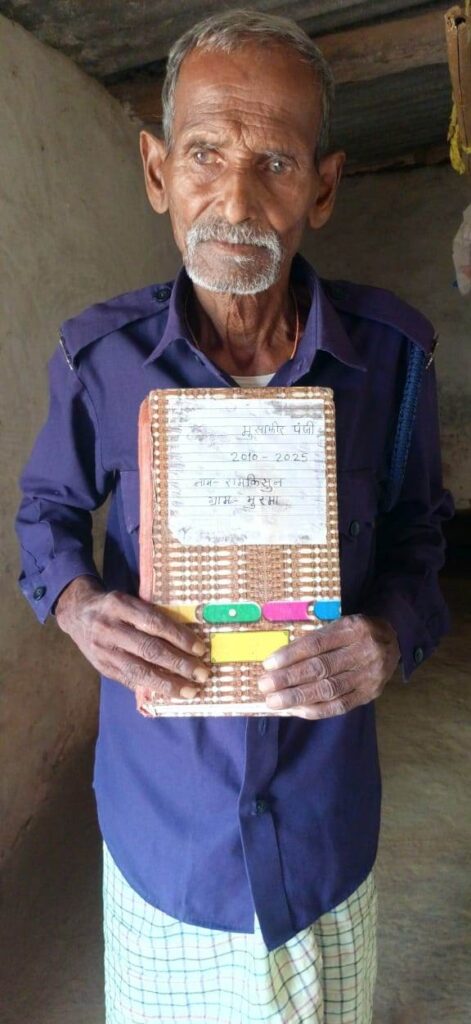 मुसाफीर पंजी
2010-2025
नाम- रामकिसुन
ग्राम- मुरमा